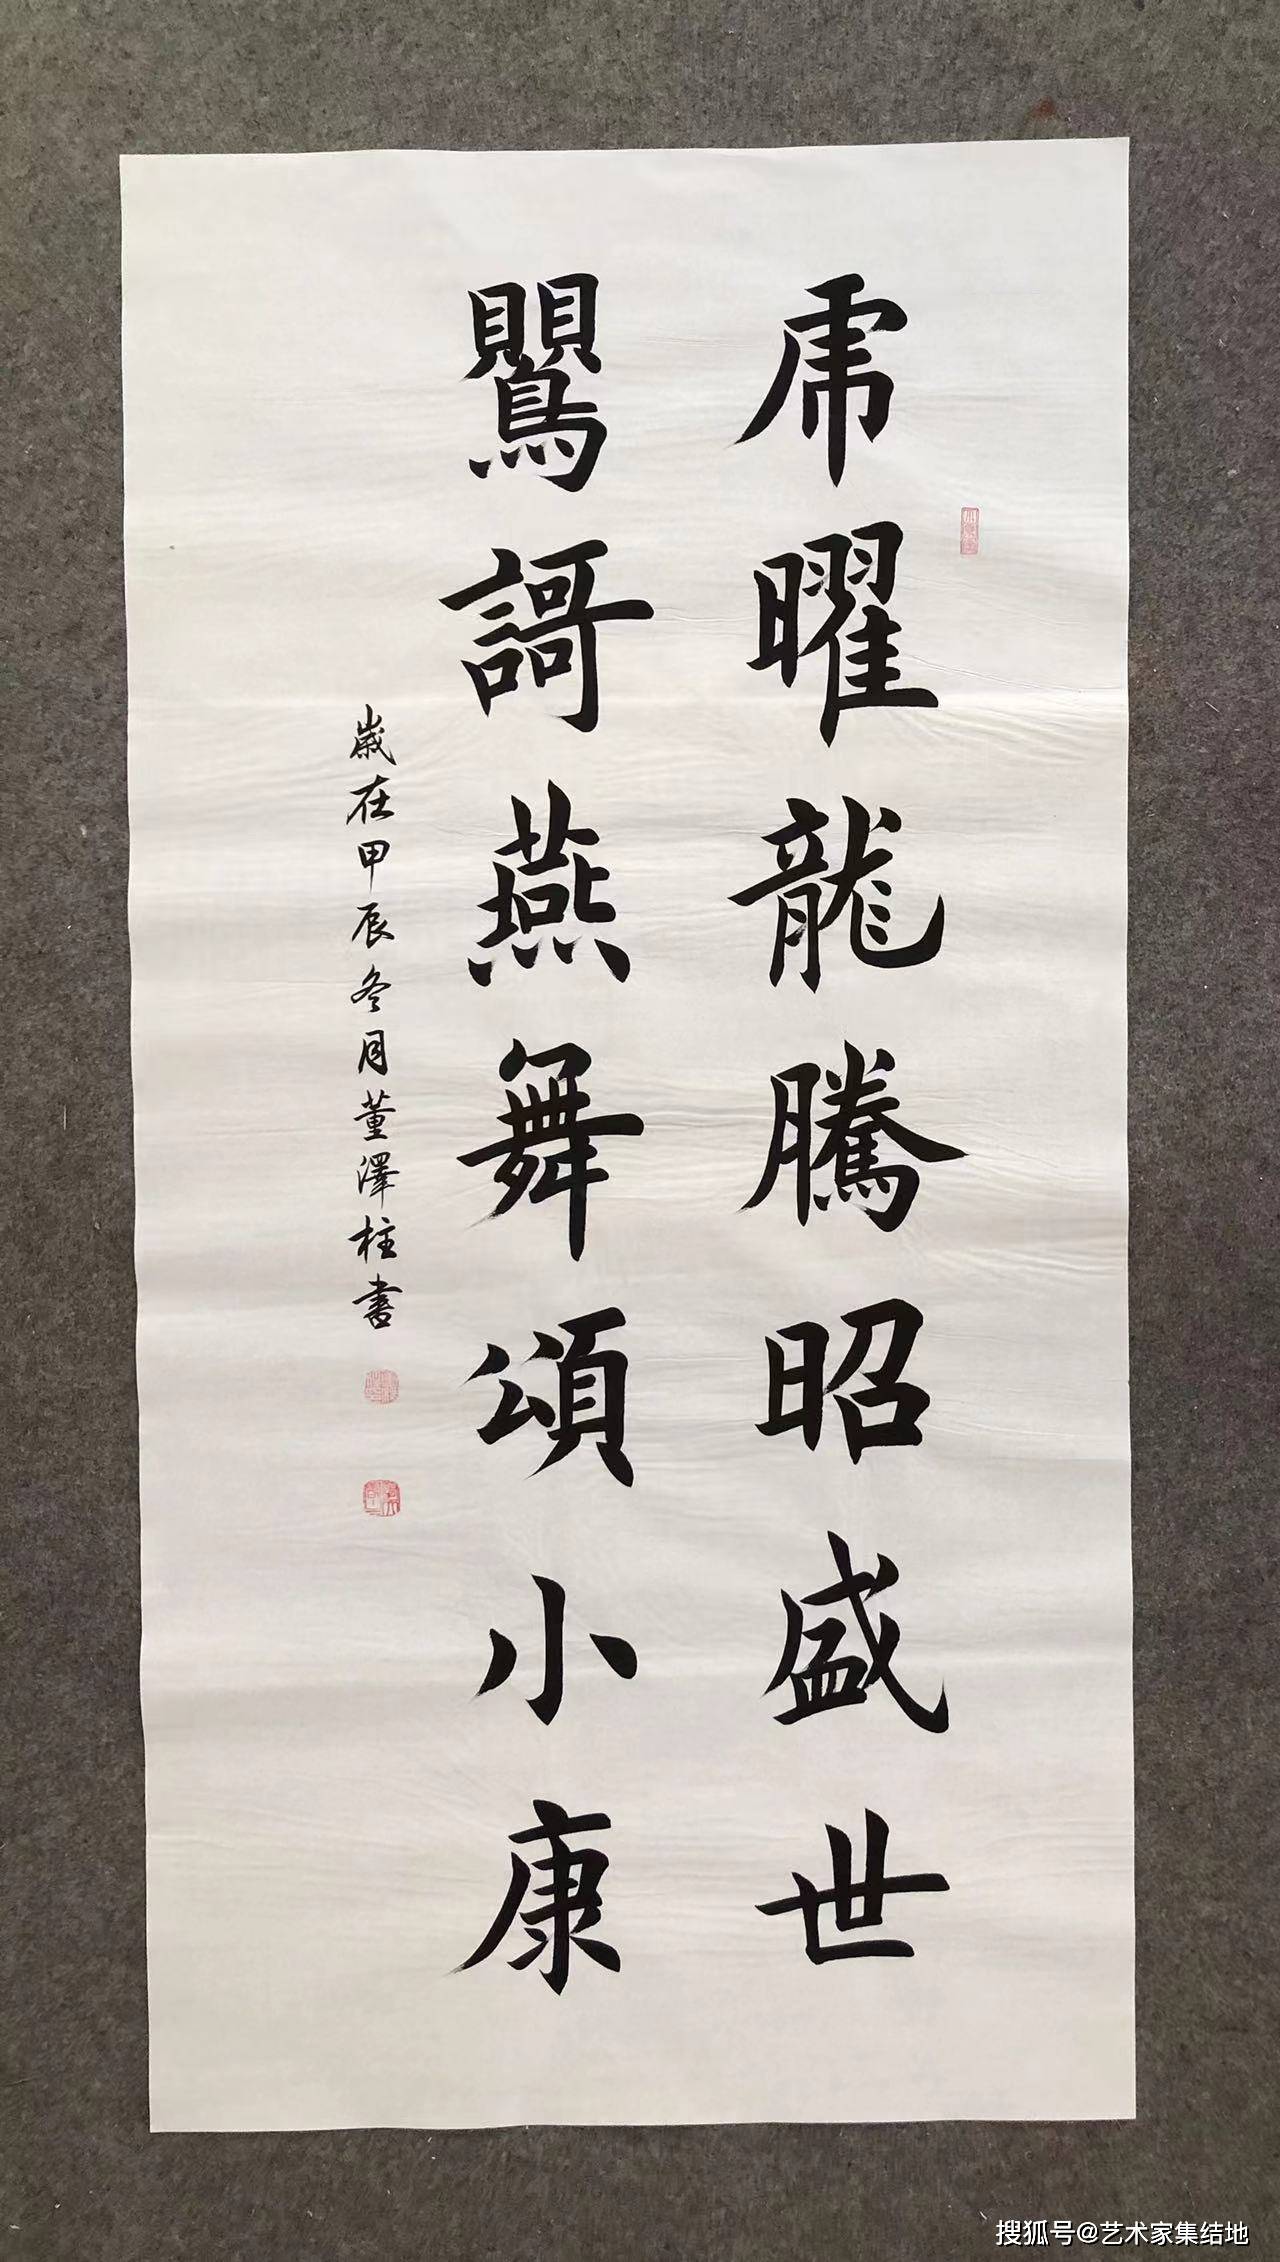 乕曜龍騰昭盛世
鸎謌燕舞頌小康
歲在甲辰冬月董澤柱書
搜狐号@艺术家集结地